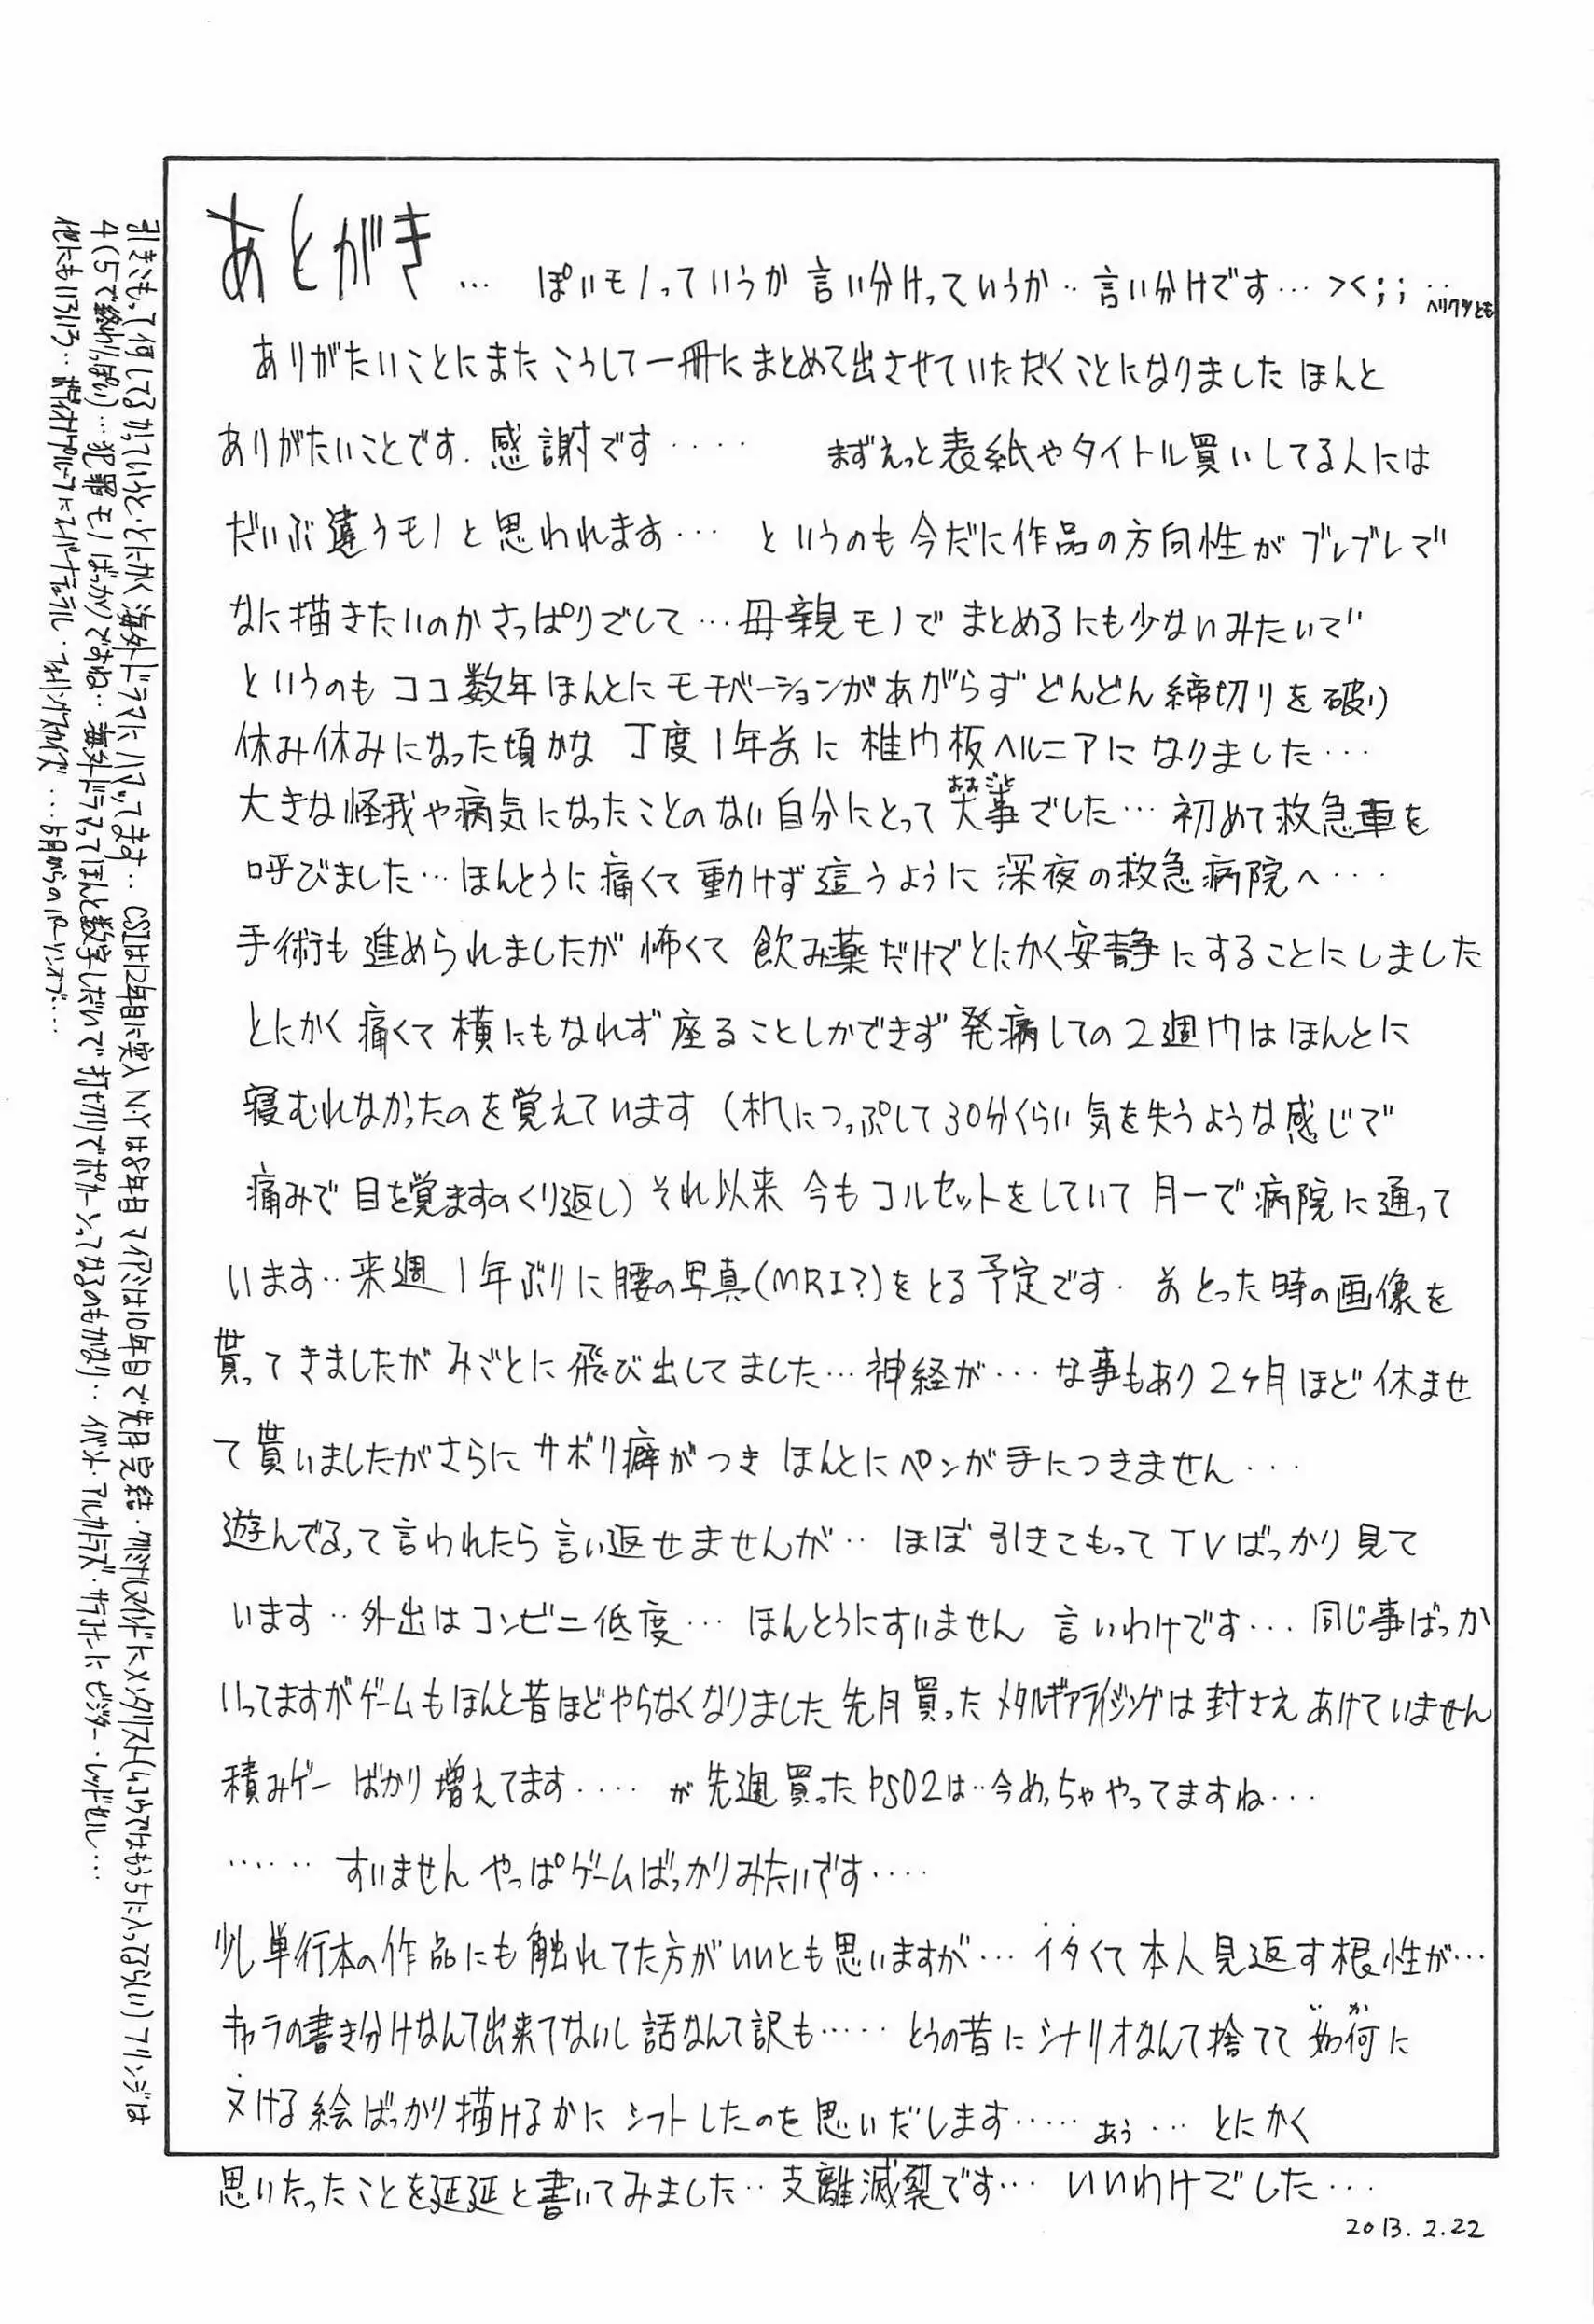 あとがき… ぽいモノっていうか 言い分けっていうか‥言い分けです…><;;‥ヘリクツとも
ありがたいことにまた こうして一冊に まとめて出させていただくことになりました ほんと
ありがたいことです. 感謝です‥‥ まずえっと表紙やタイトル買いしてる人には
だいぶ違うモノと思われます… というのも今だに作品の方向性が ブレブレで
なに描きたいのか さっぱりでして…母親モノで まとめるにも少ないみたいで
というのも ココ数年ほんとに モチベーションがあがらず どんどん 締切りを破り
休み休みになった頃かな 丁度1年前に 椎間板ヘルニアに なりました…
大きな怪我や病気になったことのない自分にとって 大事おおごとでした… 初めて救急車を
呼びました…ほんとうに痛くて動けず這うように 深夜の救急病院へ…
手術も進められましたが怖くて 飲み薬だけでとにかく安静にすることにしました
とにかく 痛くて横にもなれず 座ることしかできず 発病しての2週間はほんとに
寝むれなかったのを覚えています(机につっぷして30分くらい気を失うような感じで
痛みで目を覚ますのくり返し)それ以来 今もコルセットをしていて 月一で病院に通って
います‥来週1年ぶりに腰の写真(MRI?)をとる予定です. 前とった時の画像を
貰ってきましたが みごとに飛び出してました…神経が…な事もあり2ヶ月ほど休ませ
て貰いましたがさらに サボリ癖がつき ほんとにペンが手につきません…
遊んでるって言われたら言い返せませんが‥ ほぼ引きこもってTVばっかり見て
います‥外出はコンビニ低度… ほんとうにすいません 言いわけです… 同じ事ばっか
いってますがゲームもほんと昔ほどやらなくなりました 先月買った メタルギアライジングは封さえあけていません
積みゲー ばかり増えてます‥‥ が先週買ったPSO2は‥今めっちゃやってますね…
‥‥‥ すいません やっぱゲームばっかりみたいです‥‥
少し単行本の作品にも触れてた方がいいとも思いますが… イタくて本人見返す根性が…
キャラの書き分けなんて出来てないし 話なんて訳も‥‥‥ とうの昔にシナリオなんて捨てて 如何いかに
ヌける絵ばっかり描けるかに シフトしたのを思いだします‥‥‥ あう… とにかく
思いたったことを延延と書いてみました‥支離滅裂です… いいわけでした…
2013.2.22
引きこもって何してるかっていうと・とにかく海外ドラマにハマってます‥ CSIは12年目に突入 N.Yは8年目 マイアミは10年目で先月完結・クリミナルマインドにメンタリスト( はもううちに入ってるらしい)フリンジは
4(5で終わりっぽい)…犯罪モノばっかりですね‥海外ドラマってほんと数字しだいで打ち切りでポカーンってなるのもかなり‥イベント・アルカトラズ・サラコナーに ビジター・レッドセル…
他にもいろいろ‥ボディオブプルーフにスーパーナチュラル・フォーリングスカイズ…5月からのパーソンオブ…